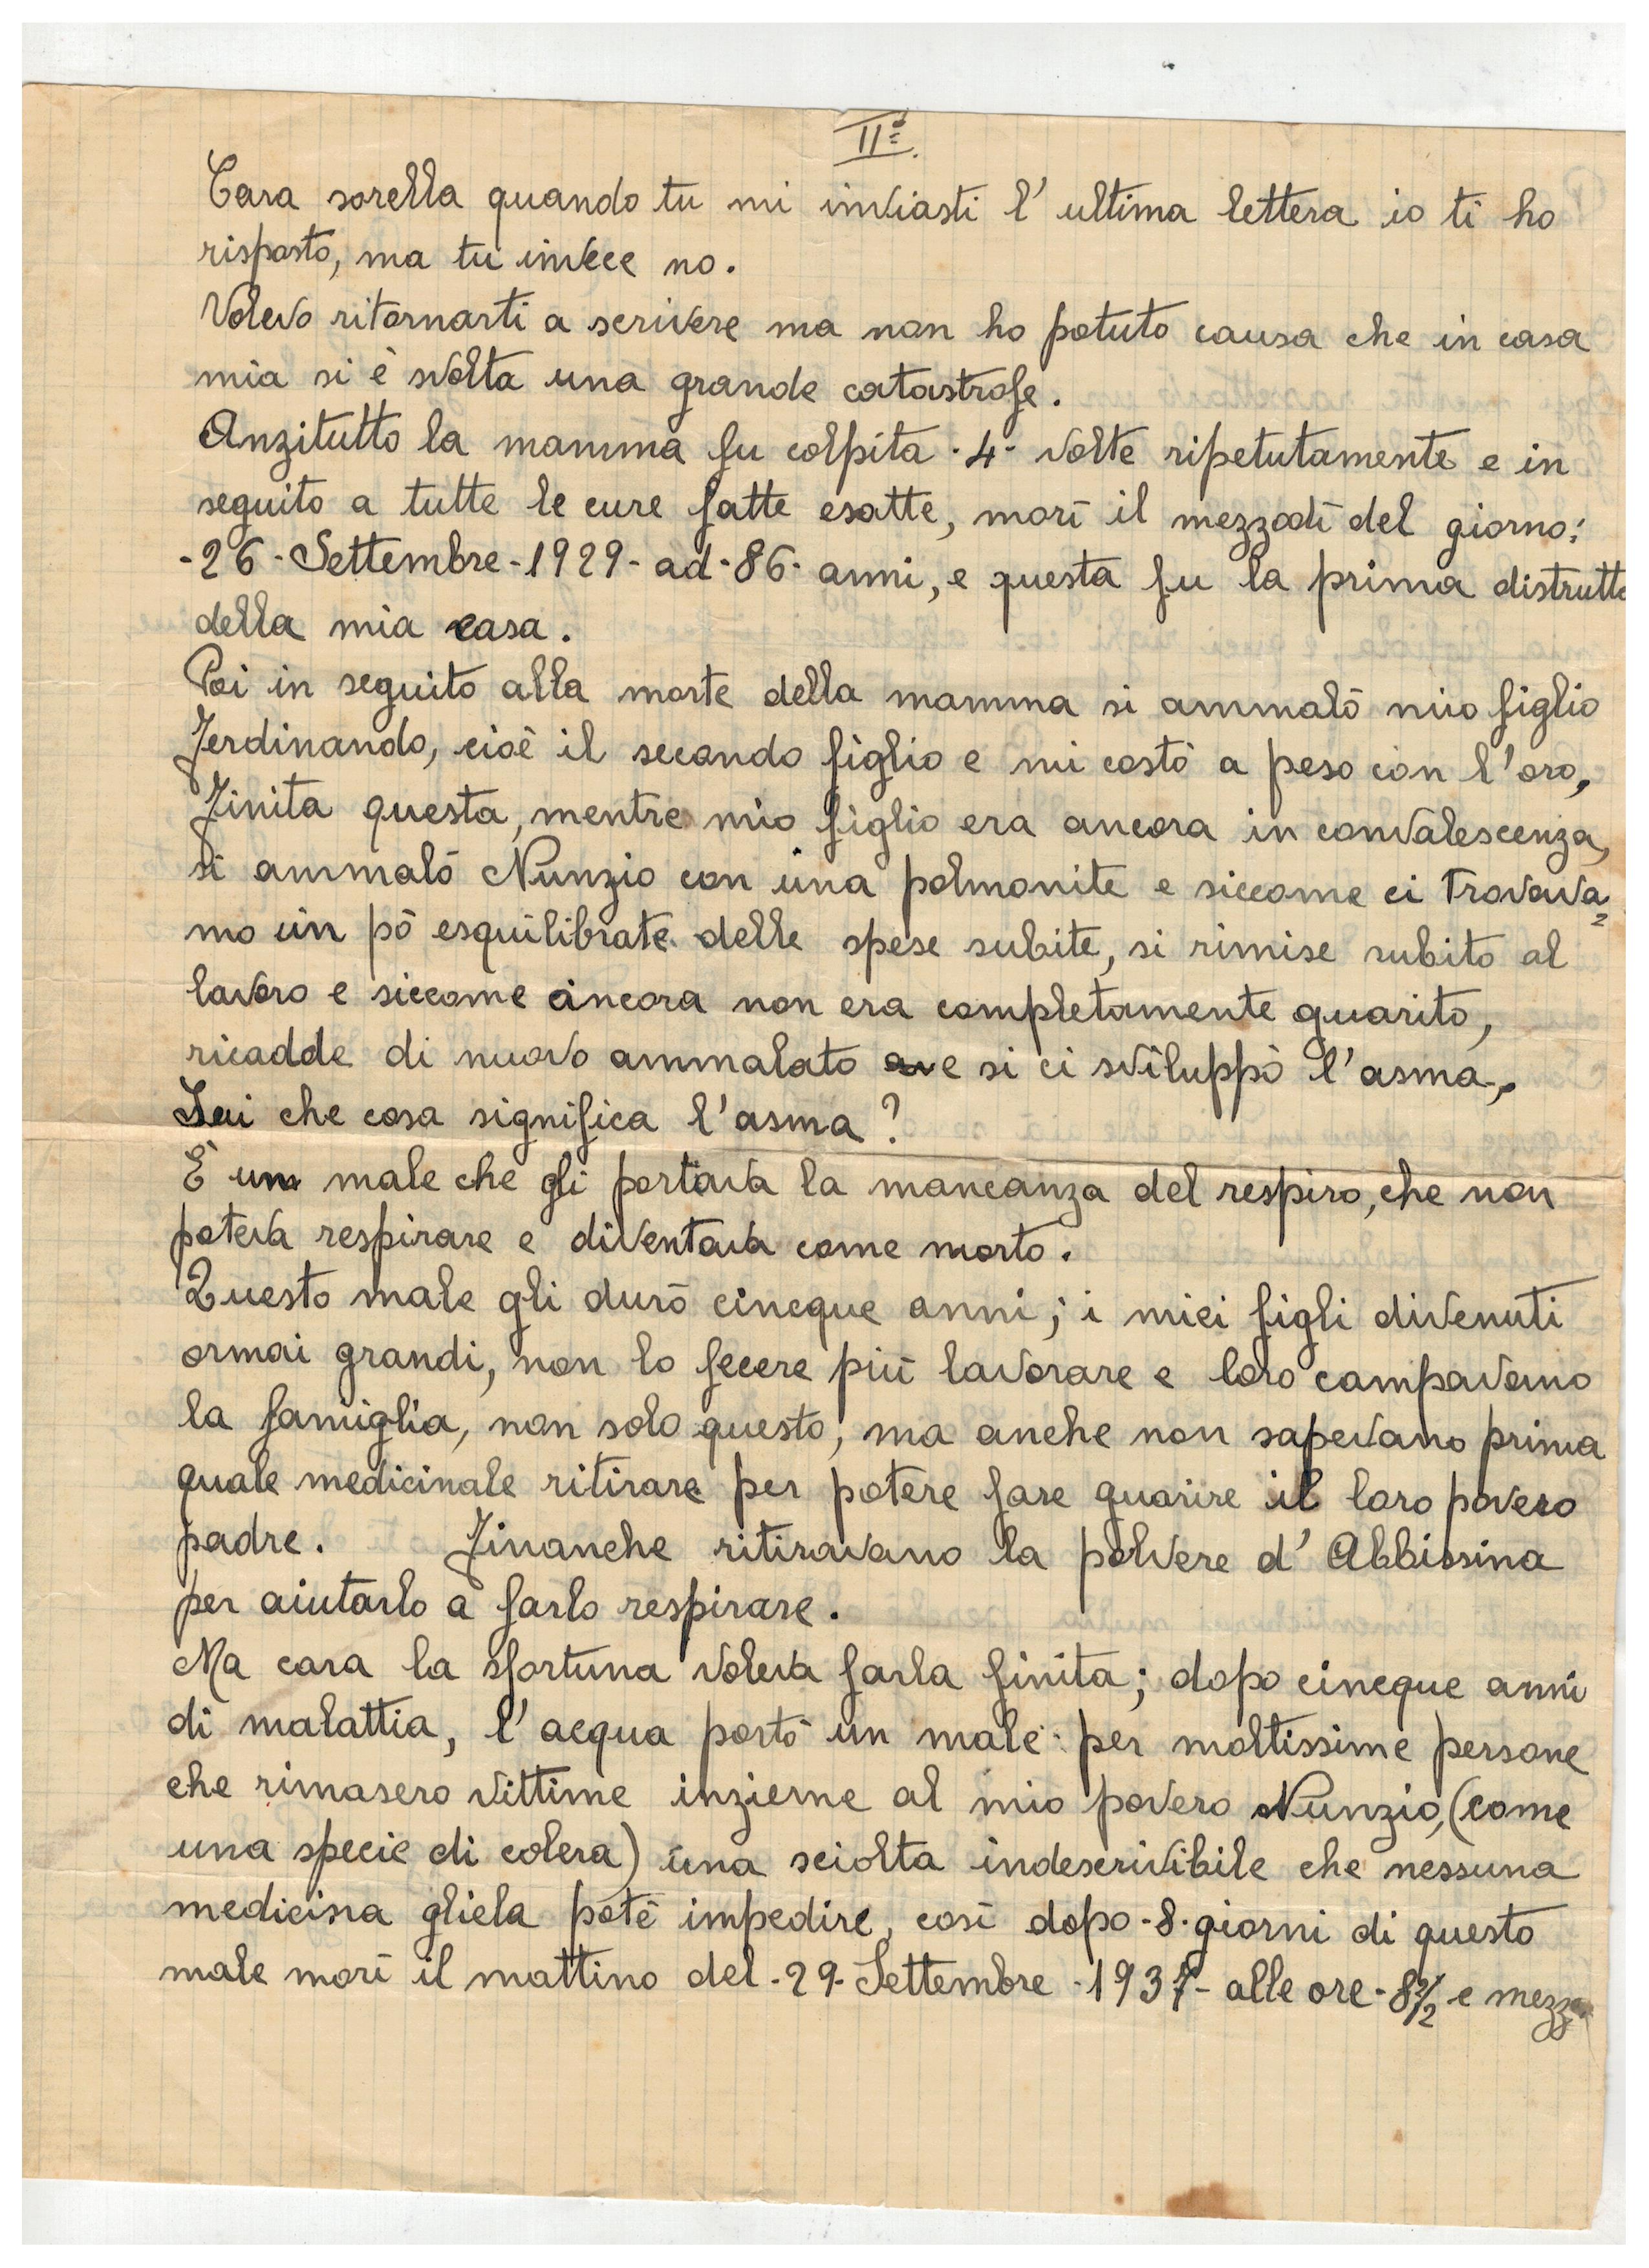 IIª.
Cara sorella quando tu mi inviasti l'ultima lettera io ti ho
risposto, ma tu invece no.
Volevo ritornarti a scrivere ma non ho potuto causa che in casa
mia si è svolta una grande catastrofe.
Anzitutto la mamma fu colpita -4- volte ripetutamente e in
seguito a tutte le cure fatte esatte, morì il mezzodì del giorno:
-26-Settembre-1929- ad-86- anni, e questa fu la prima distrutta
della mia casa.
Poi in seguito alla morte della mamma si ammalò mio figlio
Ferdinando, cioè il secondo figlio e mi costò a peso con l'oro,
Finita questa, mentre mio figlio era ancora in convalescenza,
si ammalò Nunzio con una polmonite e siccome ci trovava=
mo un pò esquilibrate delle spese subite, si rimise subito al
lavoro e siccome ancora non era completamente guarito,
ricadde di nuovo ammalato e si ci sviluppò l'asma,.
Sai che cosa significa l'asma?
È un male che gli portava la mancanza del respiro, che non
poteva respirare e diventava come morto.
Questo male gli durò cincque anni; i miei figli divenuti
ormai grandi, non lo fecere più lavorare e loro campavano
la famiglia, non solo questo, ma anche non sapevano prima
quale medicinale ritirare per potere fare guarire il loro povero
padre. Finanche ritiravano la polvere d'Abbissina
per aiutarlo a farlo respirare.
Ma cara la sfortuna voleva farla finita; dopo cincque anni
di malattia, l'acqua portò un male per moltissime persone
che rimasero vittime inzieme al mio povero Nunzio, (come
una specie di colera) una sciolta indescrivibile che nessuna
medicina gliela potè impedire, così dopo -8- giorni di questo
male morì il mattino del -29-Settembre -1937- alle ore -8½ e mezza